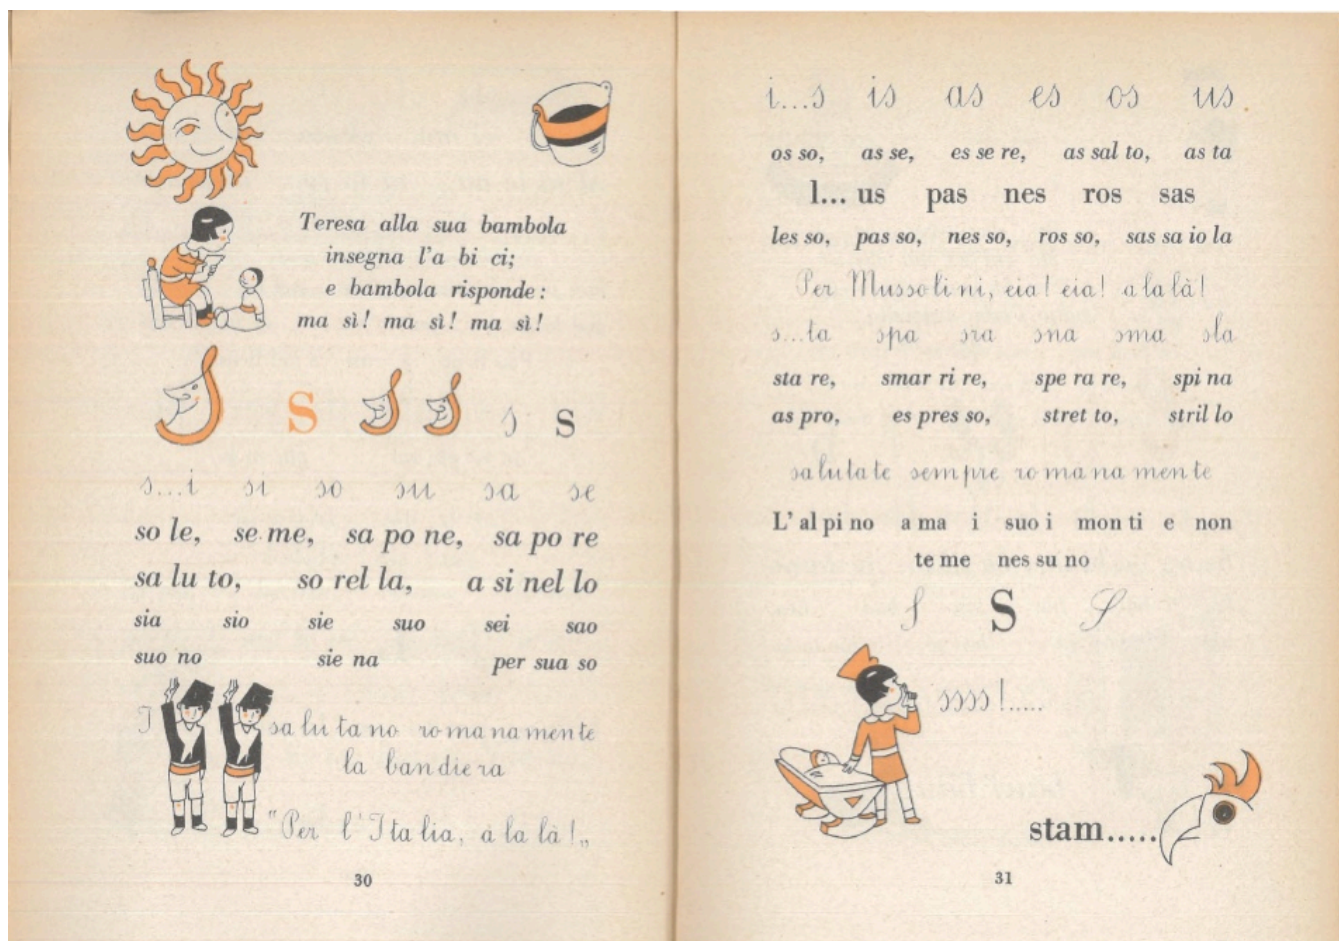 Teresa alla sua bambola
insegna l'a bi ci;
e bambola risponde:
ma sì! ma sì! ma sì!
S S S S s s
s...i si so su sa se
so le, se me, sa po ne, sa po re
sa lu to, so rel la, a si nel lo
sia sio sie suo sei sao
suo no sie na per sua so
I sa lu ta no ro ma na men te
la ban die ra
"Per l'Ita lia, a la là!„
30
i...s is as es os us
os so, as se, es se re, as sal to, as ta
l... us pas nes ros sas
les so, pas so, nes so, ros so, sas sa io la
Per Mussoli ni, eia! eia! a la là!
s...ta spa sra sna sma sla
sta re, smar ri re, spe ra re, spi na
as pro, es pres so, stret to, stril lo
sa lu ta te sem pre ro ma na men te
L' al pi no a ma i suo i mon ti e non
te me nes su no
S S S
ssss!.....
stam.....
31